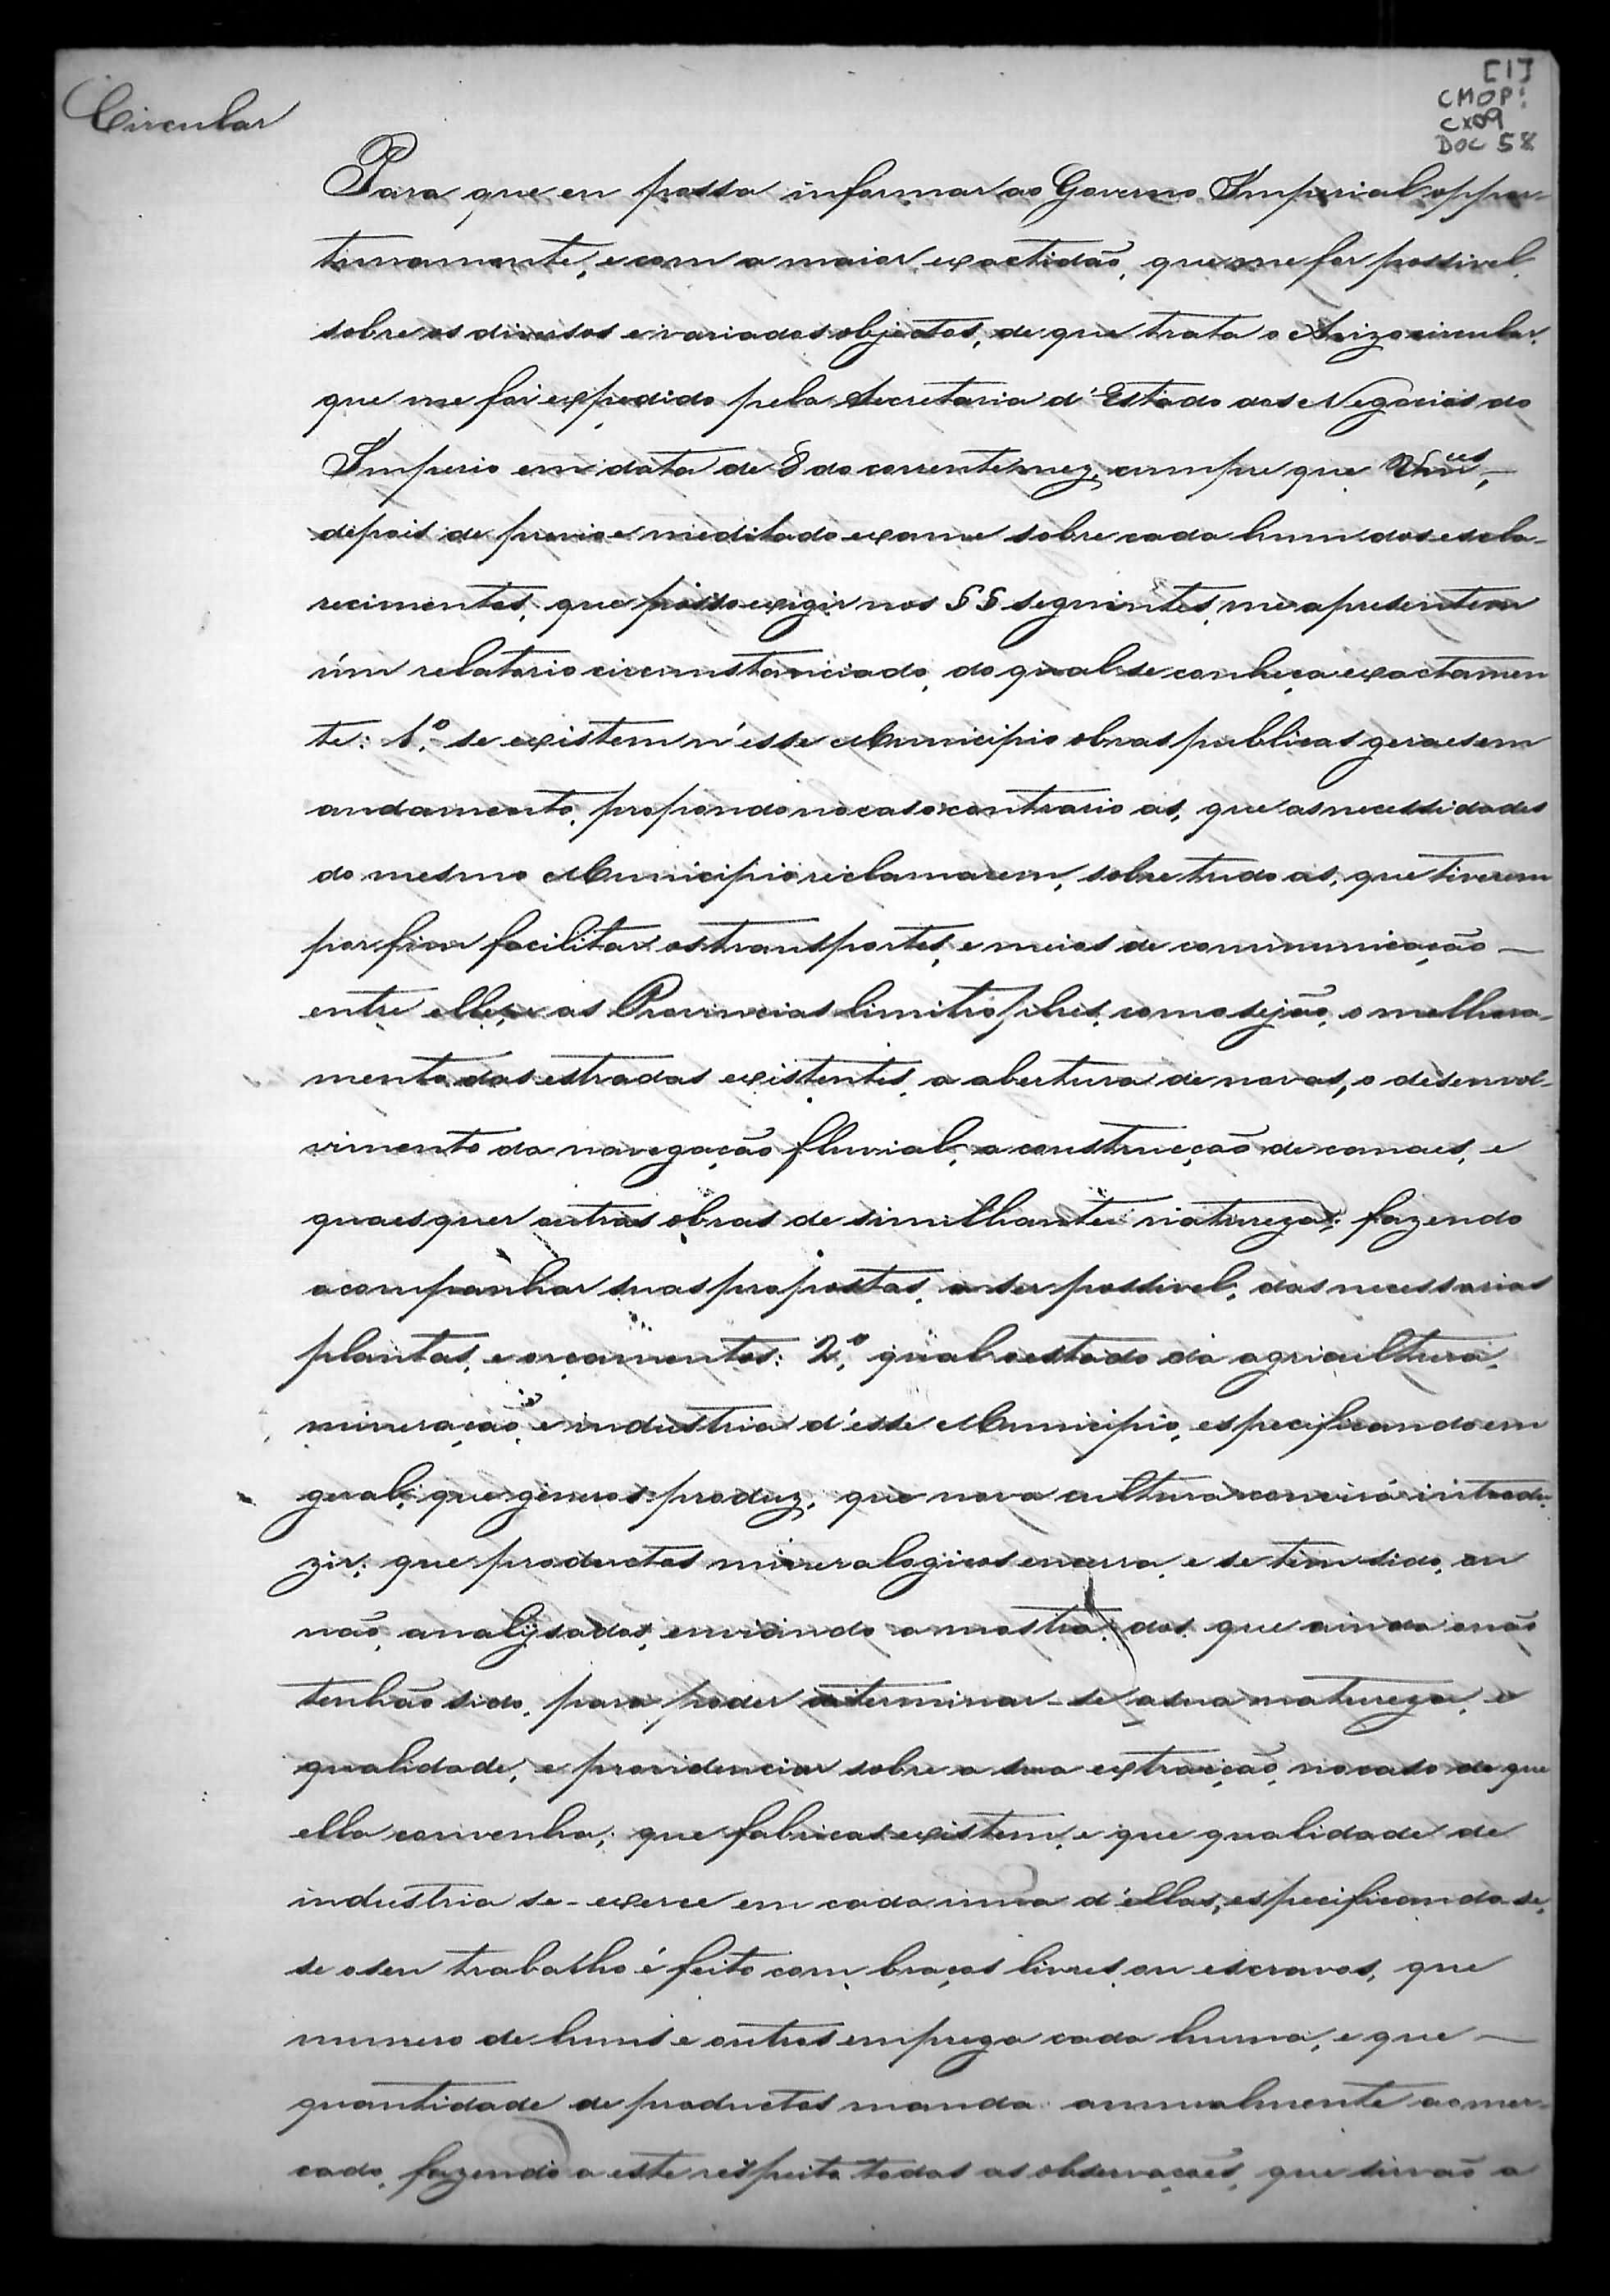 [1]
CMOP:
CX09
DOC 58
Circular
Para que eu possa informar ao Governo Imperial oppor-
tunamente, e com a maior exactidão, que me for possivel,
sobre os diversos e variados objectos, de que trata o Avizo circular,
que me foi expedido pela Secretaria d'Estado dos Negocios do
Imperio em data de 8 do corrente mez, cumpre que Vm.ces,
depois de previo e meditado exame sobre cada hum dos escla-
recimentos, que passo exigir nos §§ seguintes, me apresentem
um relatorio circumstanciado, do qual se conheça exactamen
te: 1.º se existem n'esse Municipio obras publicas geraes em
andamento, propondo no caso contrario as, que as necessidades
do mesmo Municipio reclamarem, sobre tudo as, que tiverem
por fim facilitar os transportes, e meios de communicação —
entre elle, e as Provincias limitrophes, como sejão, o melhora-
mento das estradas existentes, a abertura de novas, o desenvol-
vimento da navegação fluvial, a construcção de canaes, e
quaesquer outras obras de similhante natureza; fazendo
acompanhar suas propostas, a ser possivel, das necessarias
plantas, e orçamentos: 2.º, qual o estado da agricultura,
mineração, e industria d'esse Municipio, especificando em
geral; que generos produz, que nova cultura convirá introdu-
zir; que productos mineralogicos encerra, e se tem sido, ou
não, analysados, enviando amostra, dos que ainda o não
tenhão sido, para poder determinar-se a sua natureza, e
qualidade, e providenciar sobre a sua extracção, no caso de que
ella convenha; que fabricas existem, e que qualidade de
industria se-exerce em cada uma d'ellas, especificando-se,
se o seu trabalho é feito com braços livres ou escravos, que
numero de huns e outros emprega cada huma, e que —
quantidade de productos manda annualmente ao mer-
cado, fazendo a este respeito todas as observações, que sirvão a